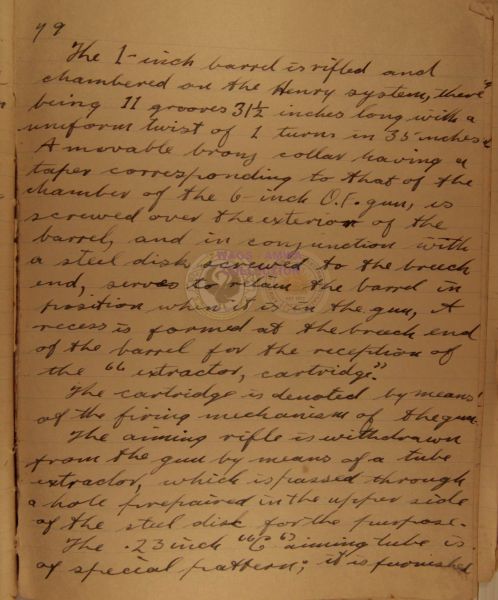 79
The 1-inch barrel is rifled and
chambered on the Henry system, there
being 11 grooves 31½ inches long with a
uniform twist of 1 turns in 35 inches
A movable bronz collar having a
taper corresponding to that of the
chamber of the 6-inch Q.F. gun, is
screwed over the exterior of the
barrel, and in conjunction with
a steel disk screwed to the breech
end, serves to retain the barrel in
position when it is in the gun, A
recess is formed at the breech end
of the barrel for the reception of
the "extractor, cartridge."
The cartridge is denoted by means
of the firing mechanism of the gun.
The aiming rifle is withdrawn
from the gun by means of a tube
extractor, which is passed through
a hole prepaired in the upper side
of the steel disk for the purpose.
The .23 inch "C" aiming tube is
of special pattern; it is furnished